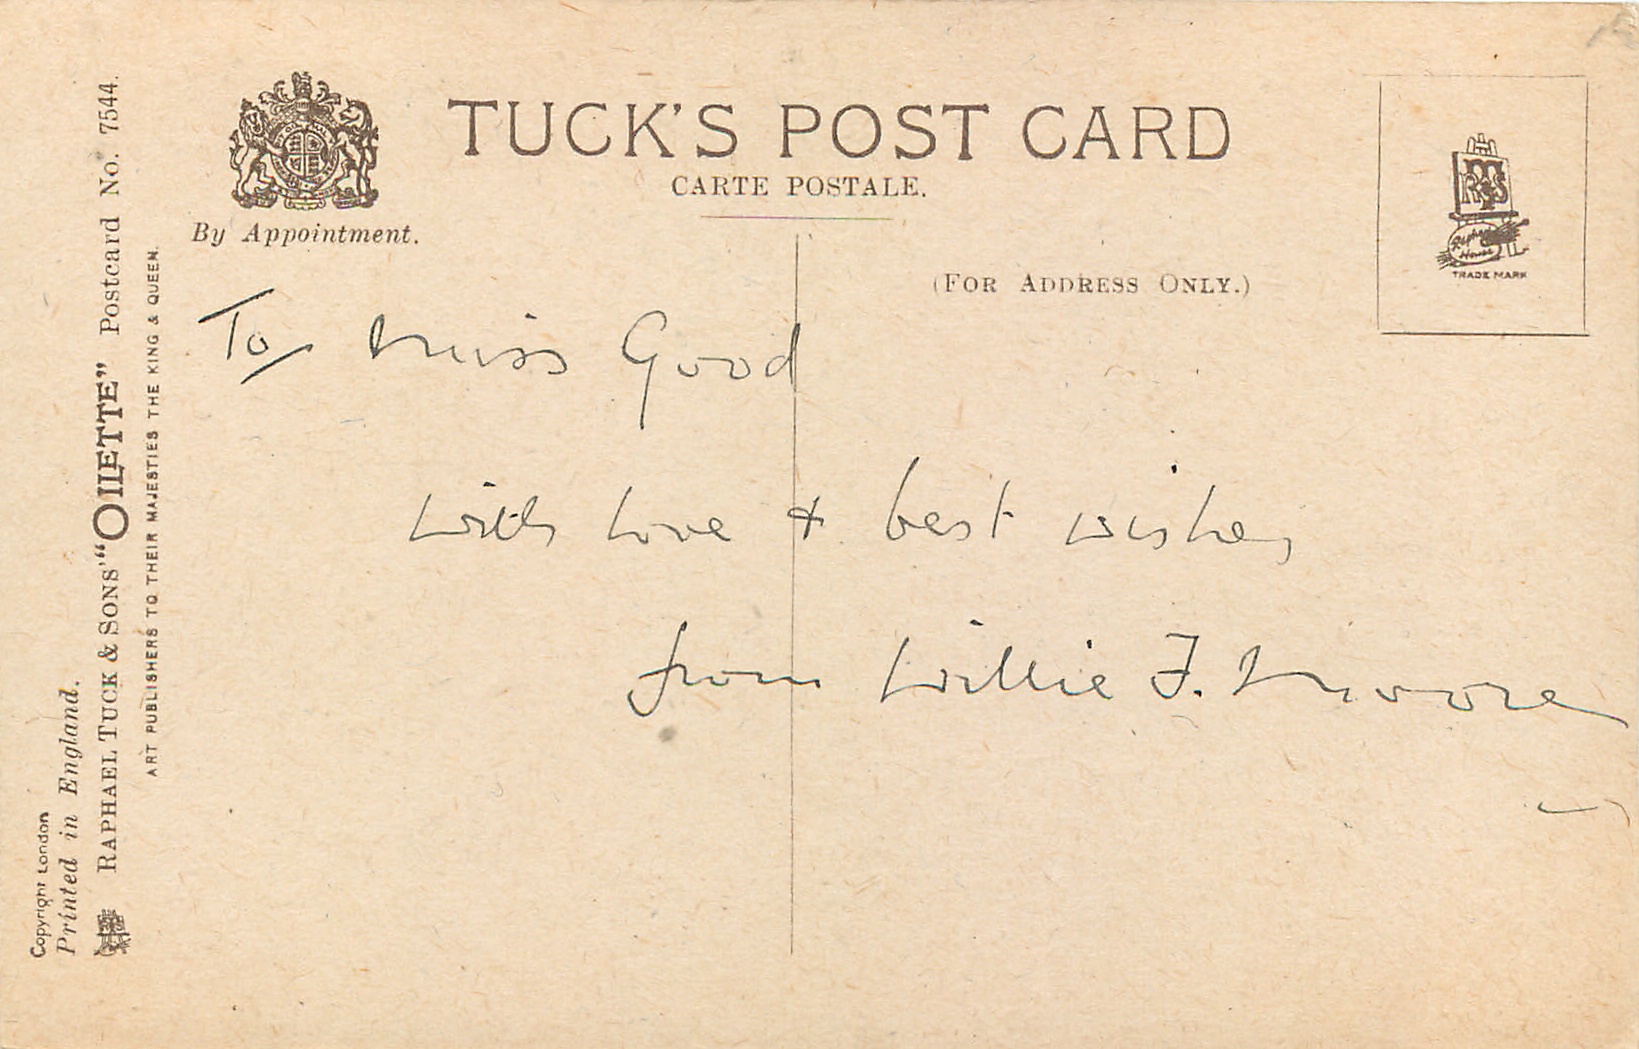 TUCK'S POST CARD
CARTE POSTALE.
By Appointment.
(FOR ADDRESS ONLY.)
RTS
Raphael
House
TRADE MARK
To Miss Good
with love + best wishes
from Willie F. Moore
Copyright London
Printed in England.
RAPHAEL TUCK & SONS' "OILETTE" Postcard No. 7544.
ART PUBLISHERS TO THEIR MAJESTIES THE KING & QUEEN.